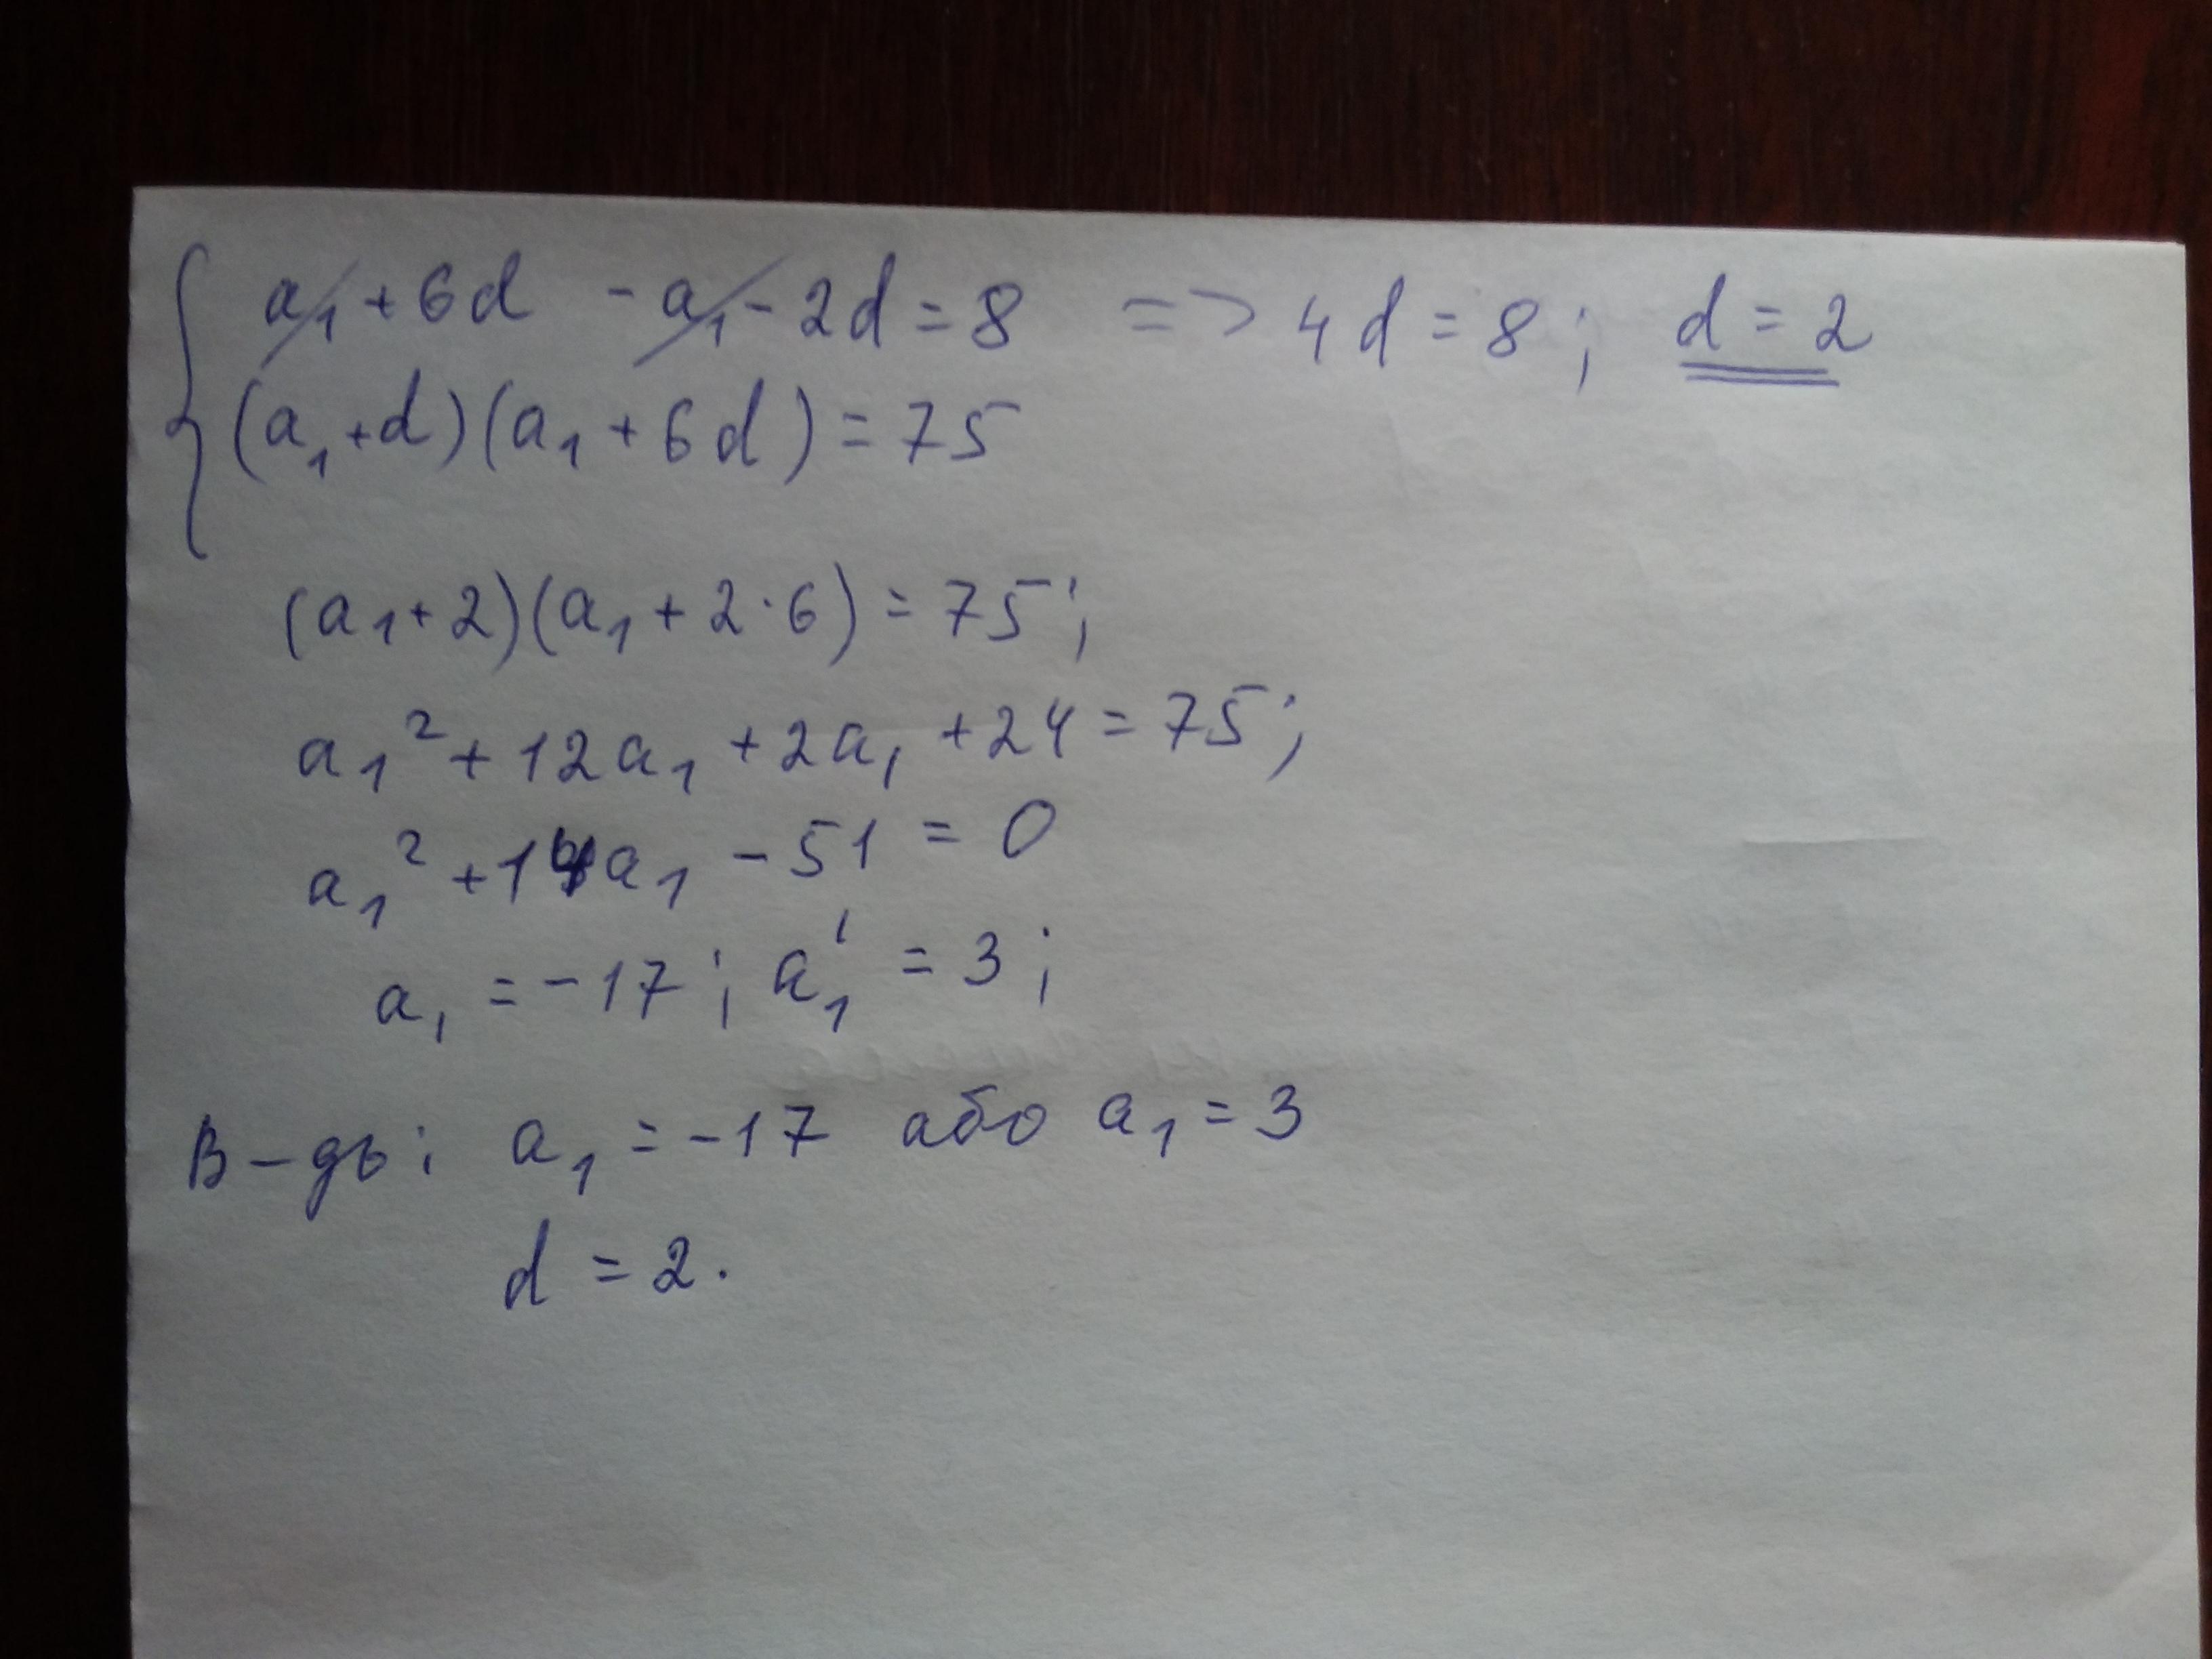 a₁ + 6d - a₁ - 2d = 8 => 4d = 8; d = 2
(a₁ + d)(a₁ + 6d) = 75
(a₁ + 2)(a₁ + 2·6) = 75;
a₁² + 12a₁ + 2a₁ + 24 = 75;
a₁² + 14a₁ - 51 = 0
a₁ = -17; a₁' = 3;
В-дь: a₁ = -17 або a₁ = 3
d = 2.